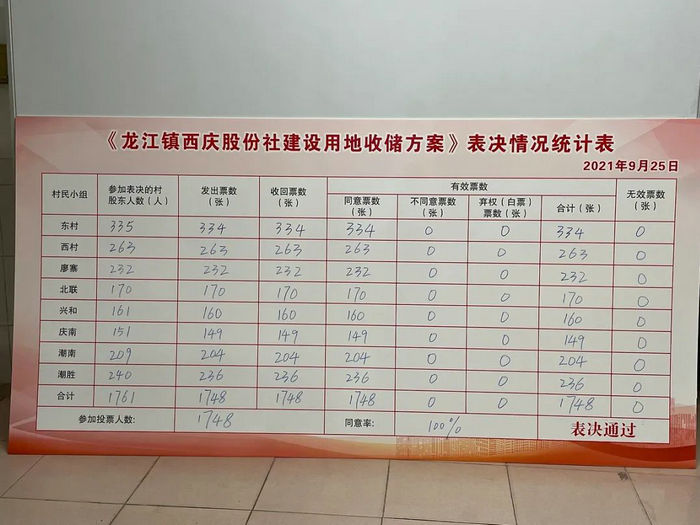 《龙江镇西庆股份社建设用地收储方案》表决情况统计表
2021年9月25日
村民小组 参加表决的村股东人数（人） 发出票数（张） 收回票数（张） 有效票数 无效票数（张）
同意票数（张） 不同意票数（张） 弃权（白票）票数（张） 合计（张）
东村 335 334 334 334 0 0 334 0
西村 263 263 263 263 0 0 263 0
廖寨 232 232 232 232 0 0 232 0
北联 170 170 170 170 0 0 170 0
兴和 161 160 160 160 0 0 160 0
庆南 151 149 149 149 0 0 149 0
潮南 209 204 204 204 0 0 204 0
潮胜 240 236 236 236 0 0 236 0
合计 1761 1748 1748 1748 0 0 1748 0
参加投票人数： 1748 同意率： 100% 表决通过